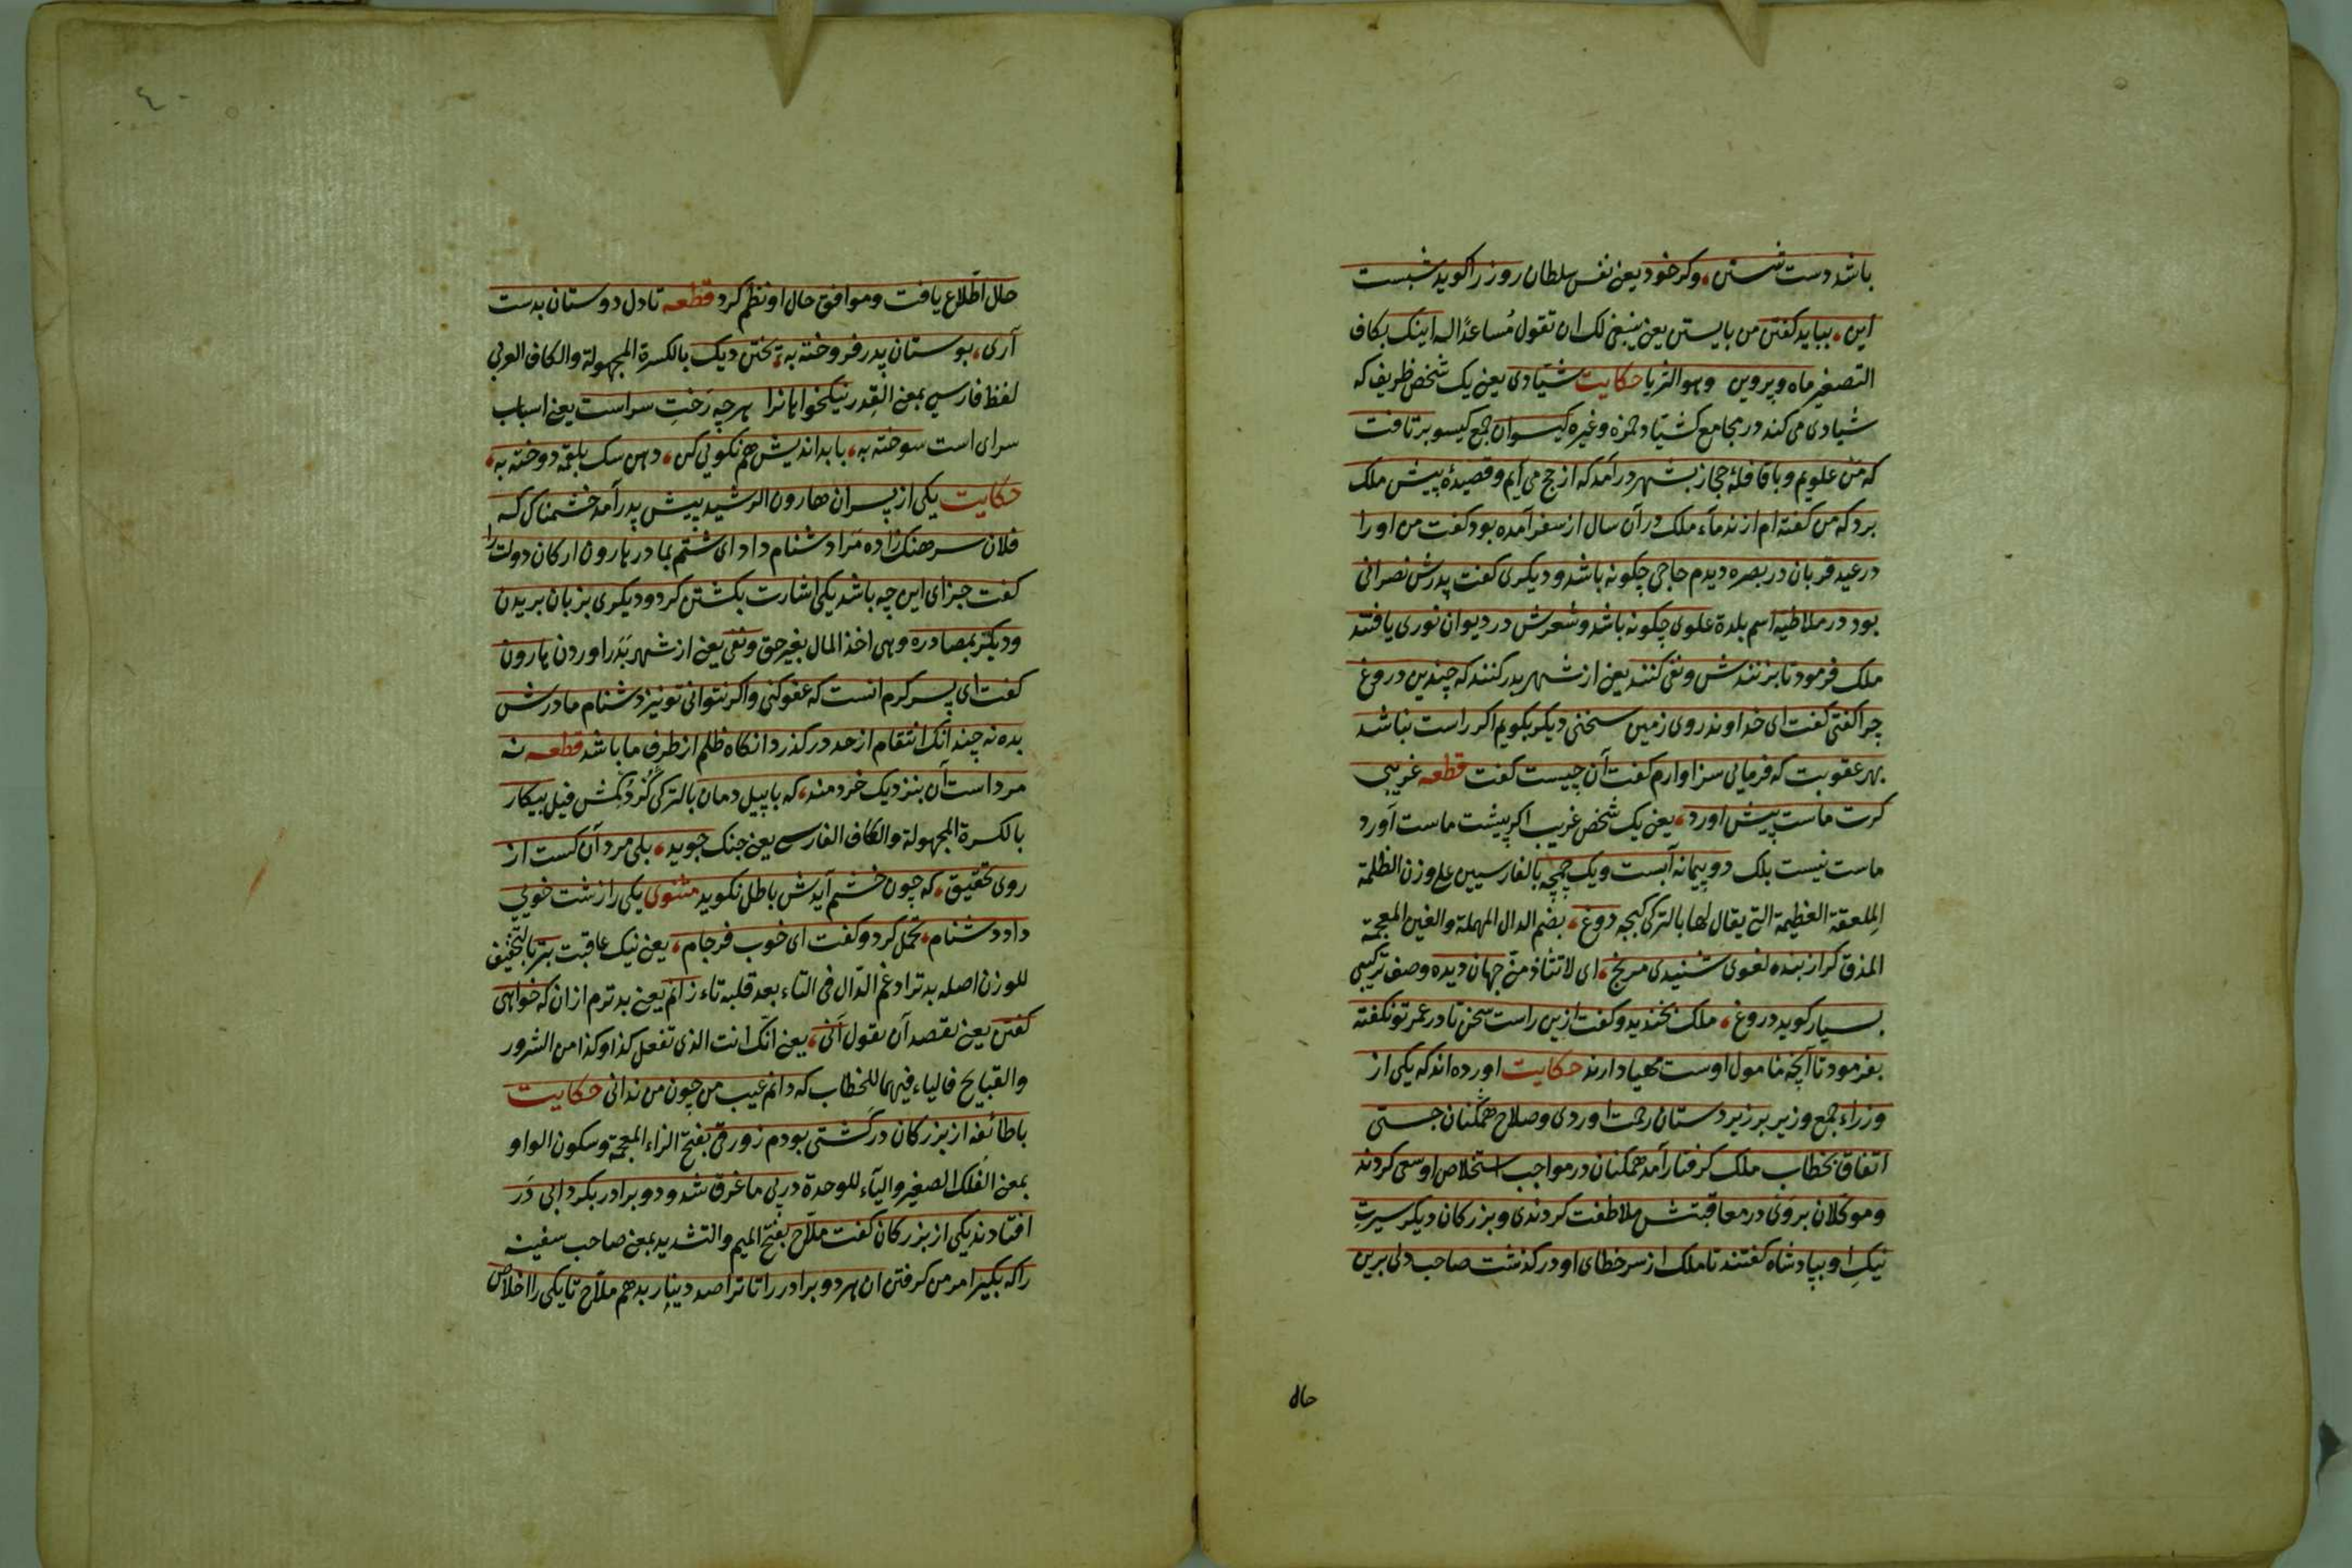 باشد دست شستن، وکر خود یعنی نفس سلطان روز را کوید شبست
این، بباید کفتن من بایستن یعنی ینبغی لک ان تقول مُساعدًا له اینک بکاف
التصغیر ماه وپروین وهو الثریا حکایت شیّادی یعنی یک شخص ظریف که
شیادی می کند در مجامع کشیّاد حمزه وغیره کیسوان جمع کیسو برتافت
که من علویم وباقافلهٔ حجاز بشهر درآمد که از حج می آیم وقصیدهٔ پیش ملک
برد که من کفته ام از ندماء ملک درآن سال از سفر آمده بود کفت من او را
در عید قربان در بصره دیدم حاجی چکونه باشد ودیکری کفت پدرش نصرانی
بود در ملاطیه اسم بلدة علوی چکونه باشد وشعرش در دیوان نوری یافتند
ملک فرمود تا بزنندش ونفی کنند یعنی از شهر بدر کنند که چندین دروغ
چرا کفتی کفت ای خداوند روی زمین سخنی دیکر بکویم اکر راست نباشد
بهر عقوبت که فرمائی سزاوارم کفت آن چیست کفت قطعه غریبی
کرت ماست پیش اورد، یعنی یک شخص غریب اکر پیشت ماست آورد
ماست نیست بلک دو پیمانه آبست ویک چمچه بالفارسیین علی وزن الظلمة
المِلعقة العظیمة التی یقال لها بالترکی کبچه دوغ، بضم الدال المهملة والغین المعجمة
المذق کر از بنده لغوی شنیدی مرنج، ای لا تتأذ منّی جهان دیده وصف ترکیبی
بسیار کوید دروغ، ملک بخندید وکفت ازین راست سخن تا در عمر تو نکفته
بفرمود تا آنچه مأمول اوست مهیا دارند حکایت اورده اند که یکی از
وزراء جمع وزیر بر زیر دستان رحمت اوردی وصلاح همکنان جستی
اتفاق بخطاب ملک کرفتار آمد همکنان در مواجب استخلاص او سعی کردند
وموکلان بروی در معاقبتش ملاطفت کردندی وبزرکان دیکر سیرتِ
نیکِ او بپادشاه کفتند تا ملک از سر خطای او درکذشت صاحب دلی برین
حال
٤٠
حال اطّلاع یافت وموافق حال او نظم کرد قطعه تا دل دوستان بدست
آری، بوستان پدر فروخته به، پختن دیک بالکسرة المجهولة والکاف العربی
لفظ فارسی بمعنی القِدر نیکخواهانرا هرچه رَختِ سراست یعنی اسباب
سرای است سوخته به، با بداندیش هم نکویی کن، دهن سک بلقمه دوخته به،
حکایت یکی از پسران هارون الرشید پیش پدر آمد خشمناک که
فلان سرهنک زاده مَرا دشنام داد ای شتم بمادر هارون ارکان دولت را
کفت جزای این چه باشد یکی اشارت بکشتن کرد ودیکری بزبان بریدن
ودیکر بمصادره وهی اخذ المال بغیر حق ونفی یعنی از شهر بَدَر اوردن هارون
کفت ای پسر کرم انست که عفو کنی واکر نتوانی تو نیز دشنام مادرش
بده نه چندانک انتقام از حد درکذرد انکاه ظلم از طرف ما باشد قطعه نه
مرد است آن بنزدیک خردمند، که با پیل دمان بالترکی کُزدُکمش فیل پیکار
بالکسرة المجهولة والکاف الفارسی یعنی جنک جوید، بلی مرد آن کست از
روی تحقیق، که چون خشم آیدش باطل نکوید مثنوی یکی را زشت خویی
داد دشنام، تحمّل کرد وکفت ای خوب فرجام، یعنی نیک عاقبت بتر بالتخفیف
للوزن اصله بدتر ادغم الدّال فی التاء بعد قلبه تاء زانم یعنی بدترم ازان که خواهی
کفتن یعنی تقصد آن تقول آنی، یعنی انّک انت الذی تفعل کذا وکذا من الشرور
والقبایح فالیاء فیهما للخطاب که دانم عیب من چون من ندانی حکایت
باطائفهٔ از بزرکان درکشتی بودم زورقی بفتح الزاء المعجمة وسکون الواو
بمعنی الفلک الصغیر والیآء للوحدة در پی ما غرق شد ودو برادر بکردابی دَر
افتادند یکی از بزرکان کفت ملّاح بفتح المیم والتشدید بمعنی صاحب سفینه
را که بکیر امر من کرفتن ان هر دو برادر را تا ترا صد دینار بدهم ملّاح تا یکی را اخلاص